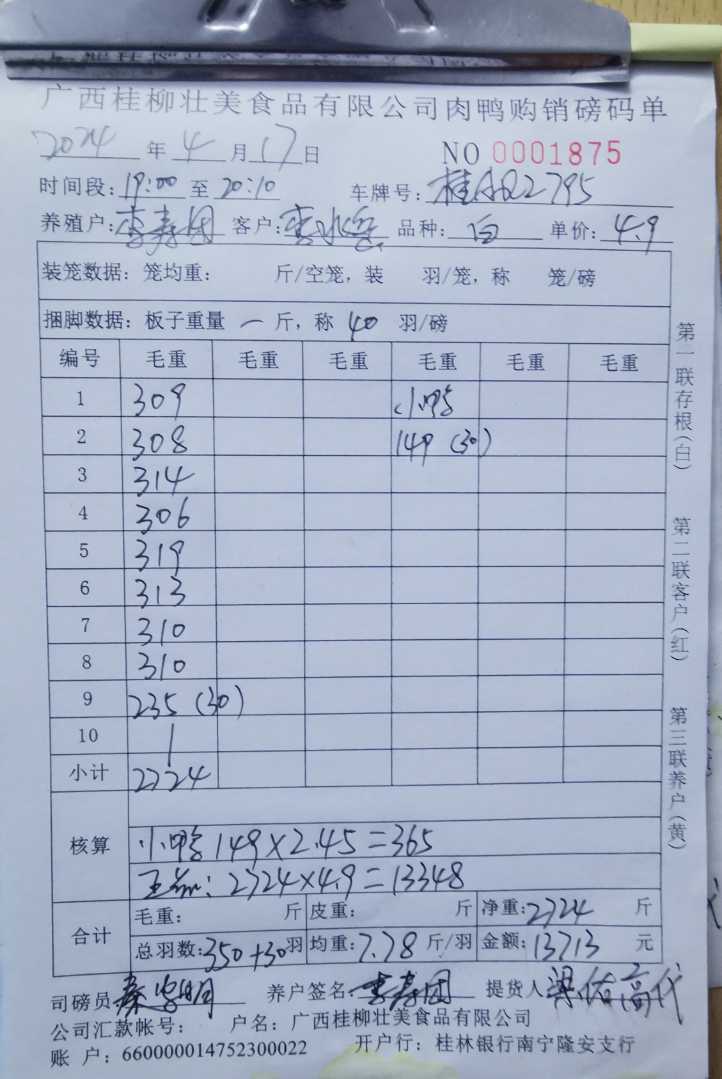 广西桂柳壮美食品有限公司肉鸭购销磅码单
2024 年 4 月 17 日 NO 0001875
时间段: 19:00 至 20:10 车牌号: 桂 2795
养殖户: 李寿团 客户: 李 品种: 白 单价: 4.9
装笼数据: 笼均重: 斤/空笼, 装 羽/笼, 称 笼/磅
捆脚数据: 板子重量 一 斤, 称 40 羽/磅
编号 毛重 毛重 毛重 毛重 毛重 毛重
1 309 小鸭
2 308 149 (30)
3 314
4 306
5 319
6 313
7 310
8 310
9 235 (30)
10
小计 2724
核算
小鸭 149×2.45=365
2724×4.9=13348
合计
毛重: 斤 皮重: 斤 净重: 2724 斤
总羽数: 350+30 羽 均重: 7.78 斤/羽 金额: 13713 元
司磅员 秦 明 养户签名: 李寿团 提货人 梁佑高代
公司汇款帐号: 户名: 广西桂柳壮美食品有限公司
账 户: 660000014752300022 开户行: 桂林银行南宁隆安支行
第一联存根(白)
第二联客户(红)
第三联养户(黄)